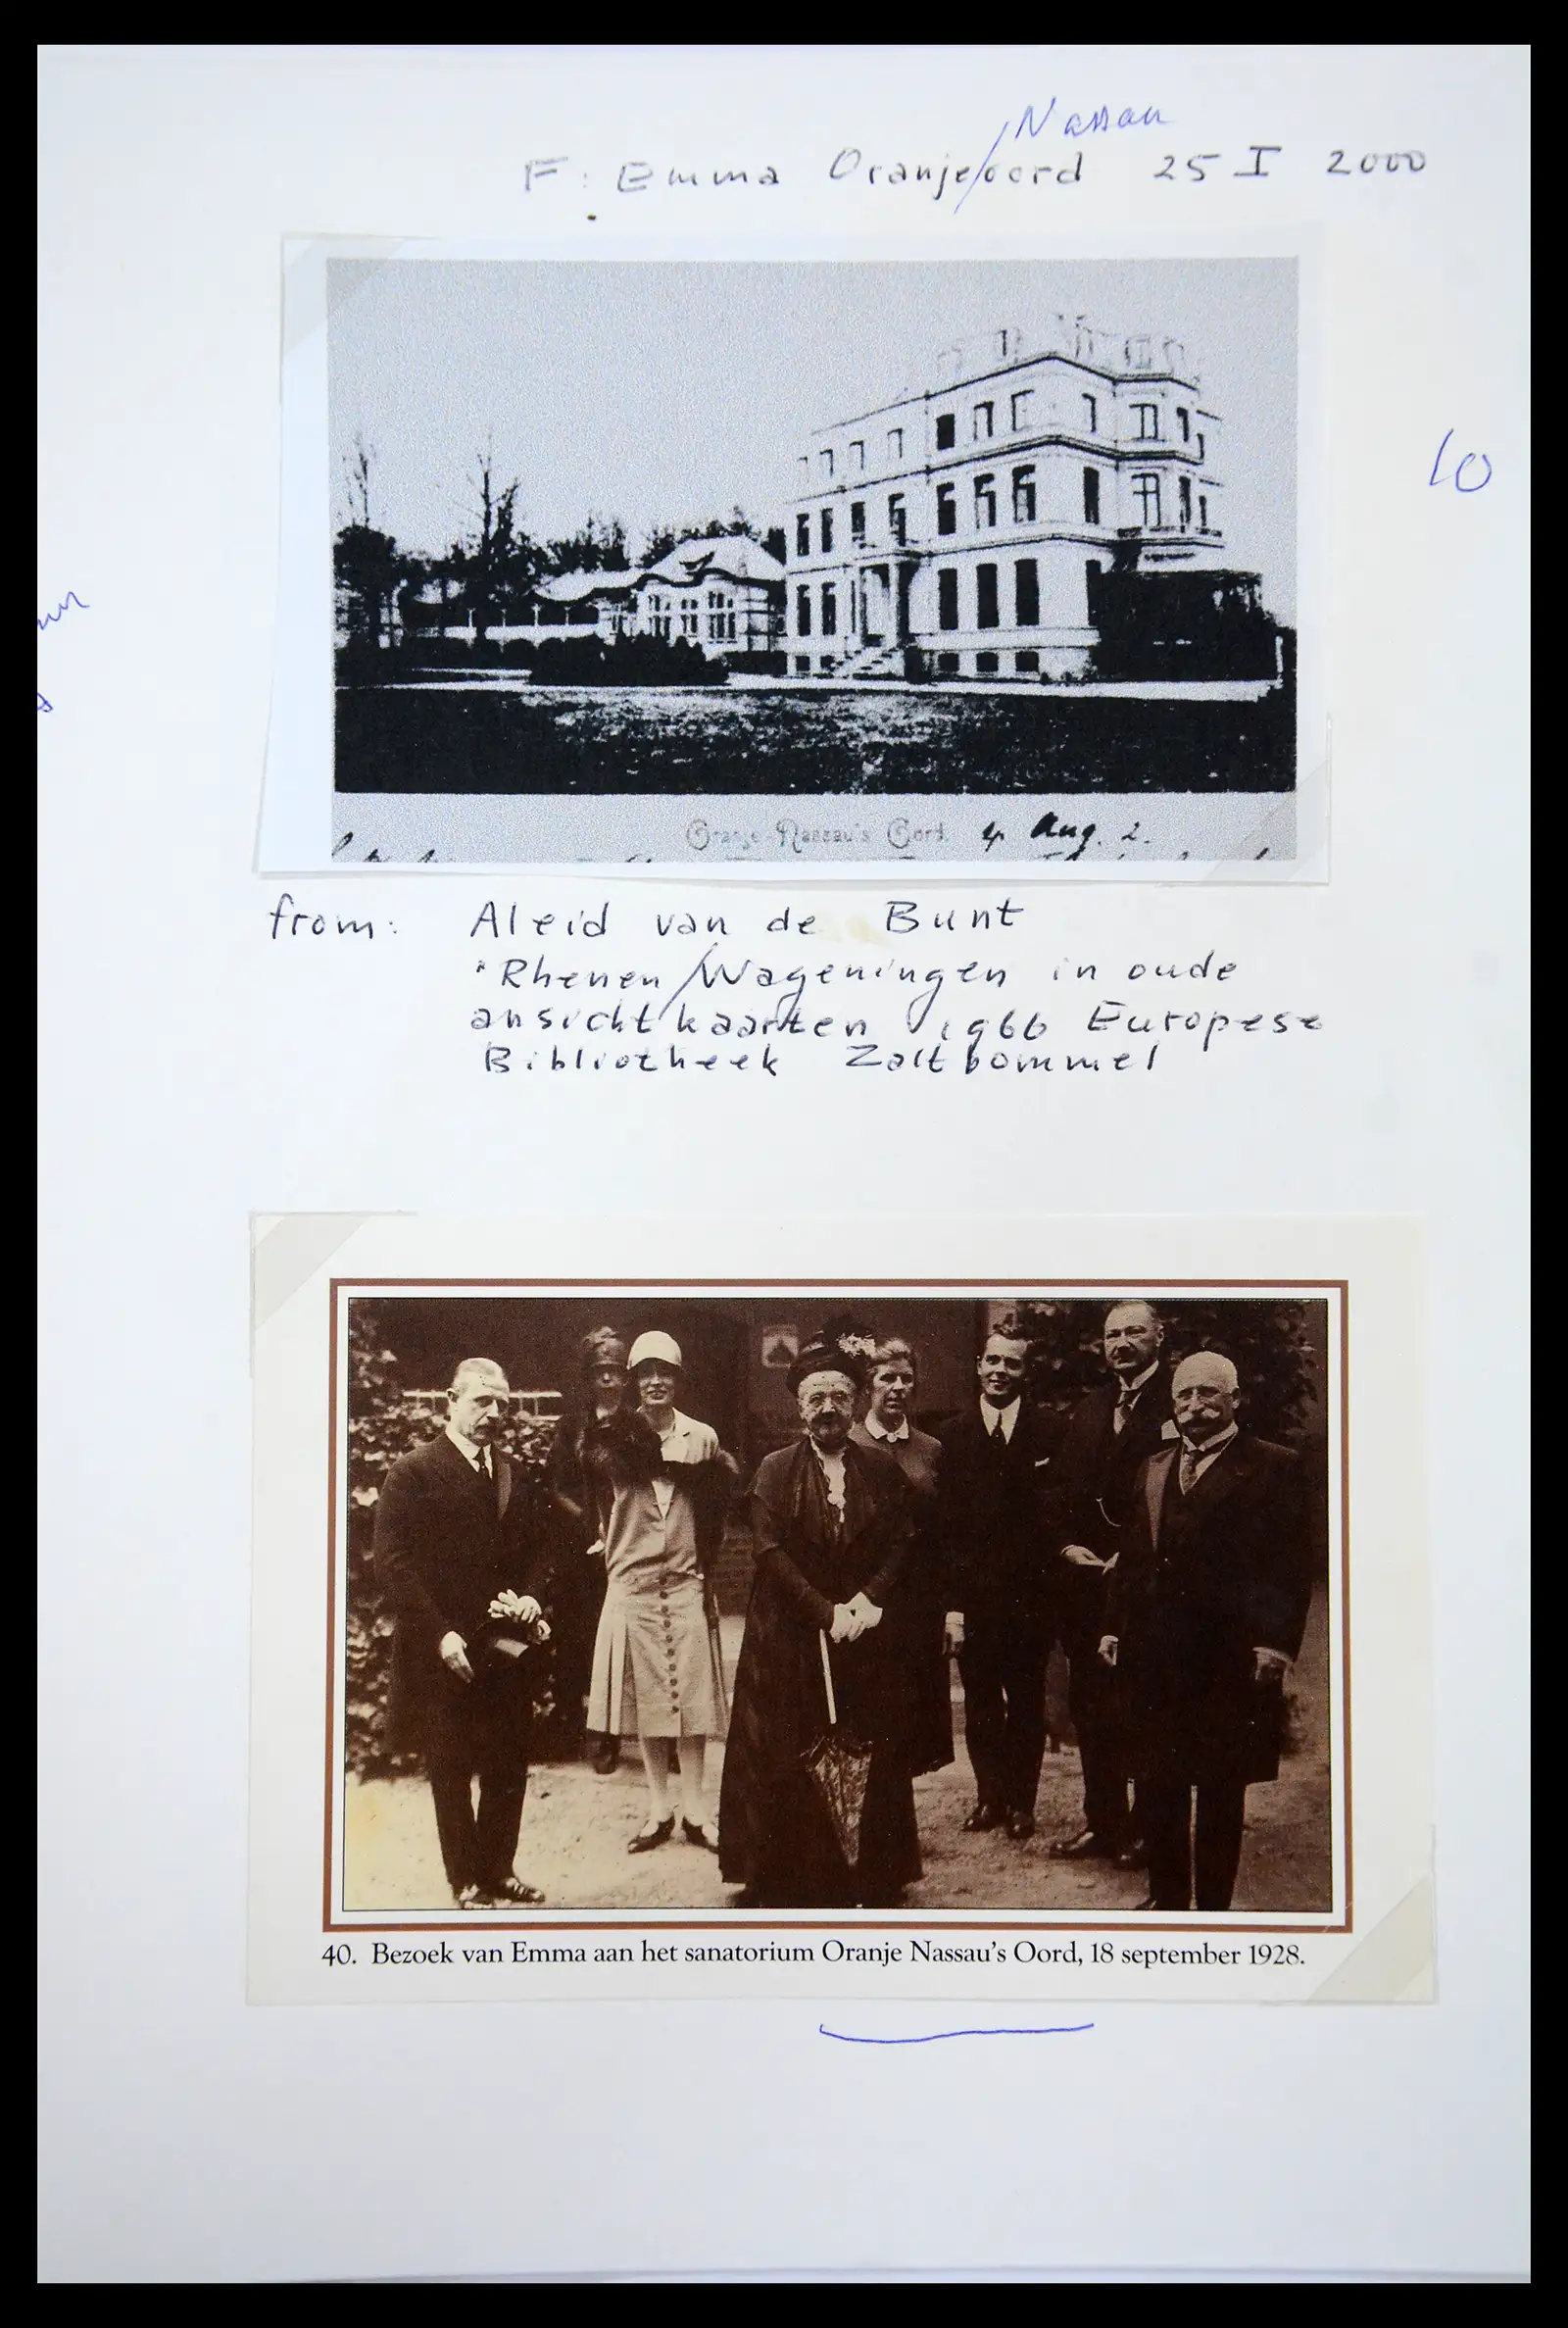 Nassau
F: Emma Oranje/oord 25 I 2000
10
Oranje-Nassau's Oord. 4 Aug. 2.
from: Aleid van de Bunt
"Rhenen/Wageningen in oude
ansichtkaarten 1966 Europese
Bibliotheek Zaltbommel
40. Bezoek van Emma aan het sanatorium Oranje Nassau's Oord, 18 september 1928.